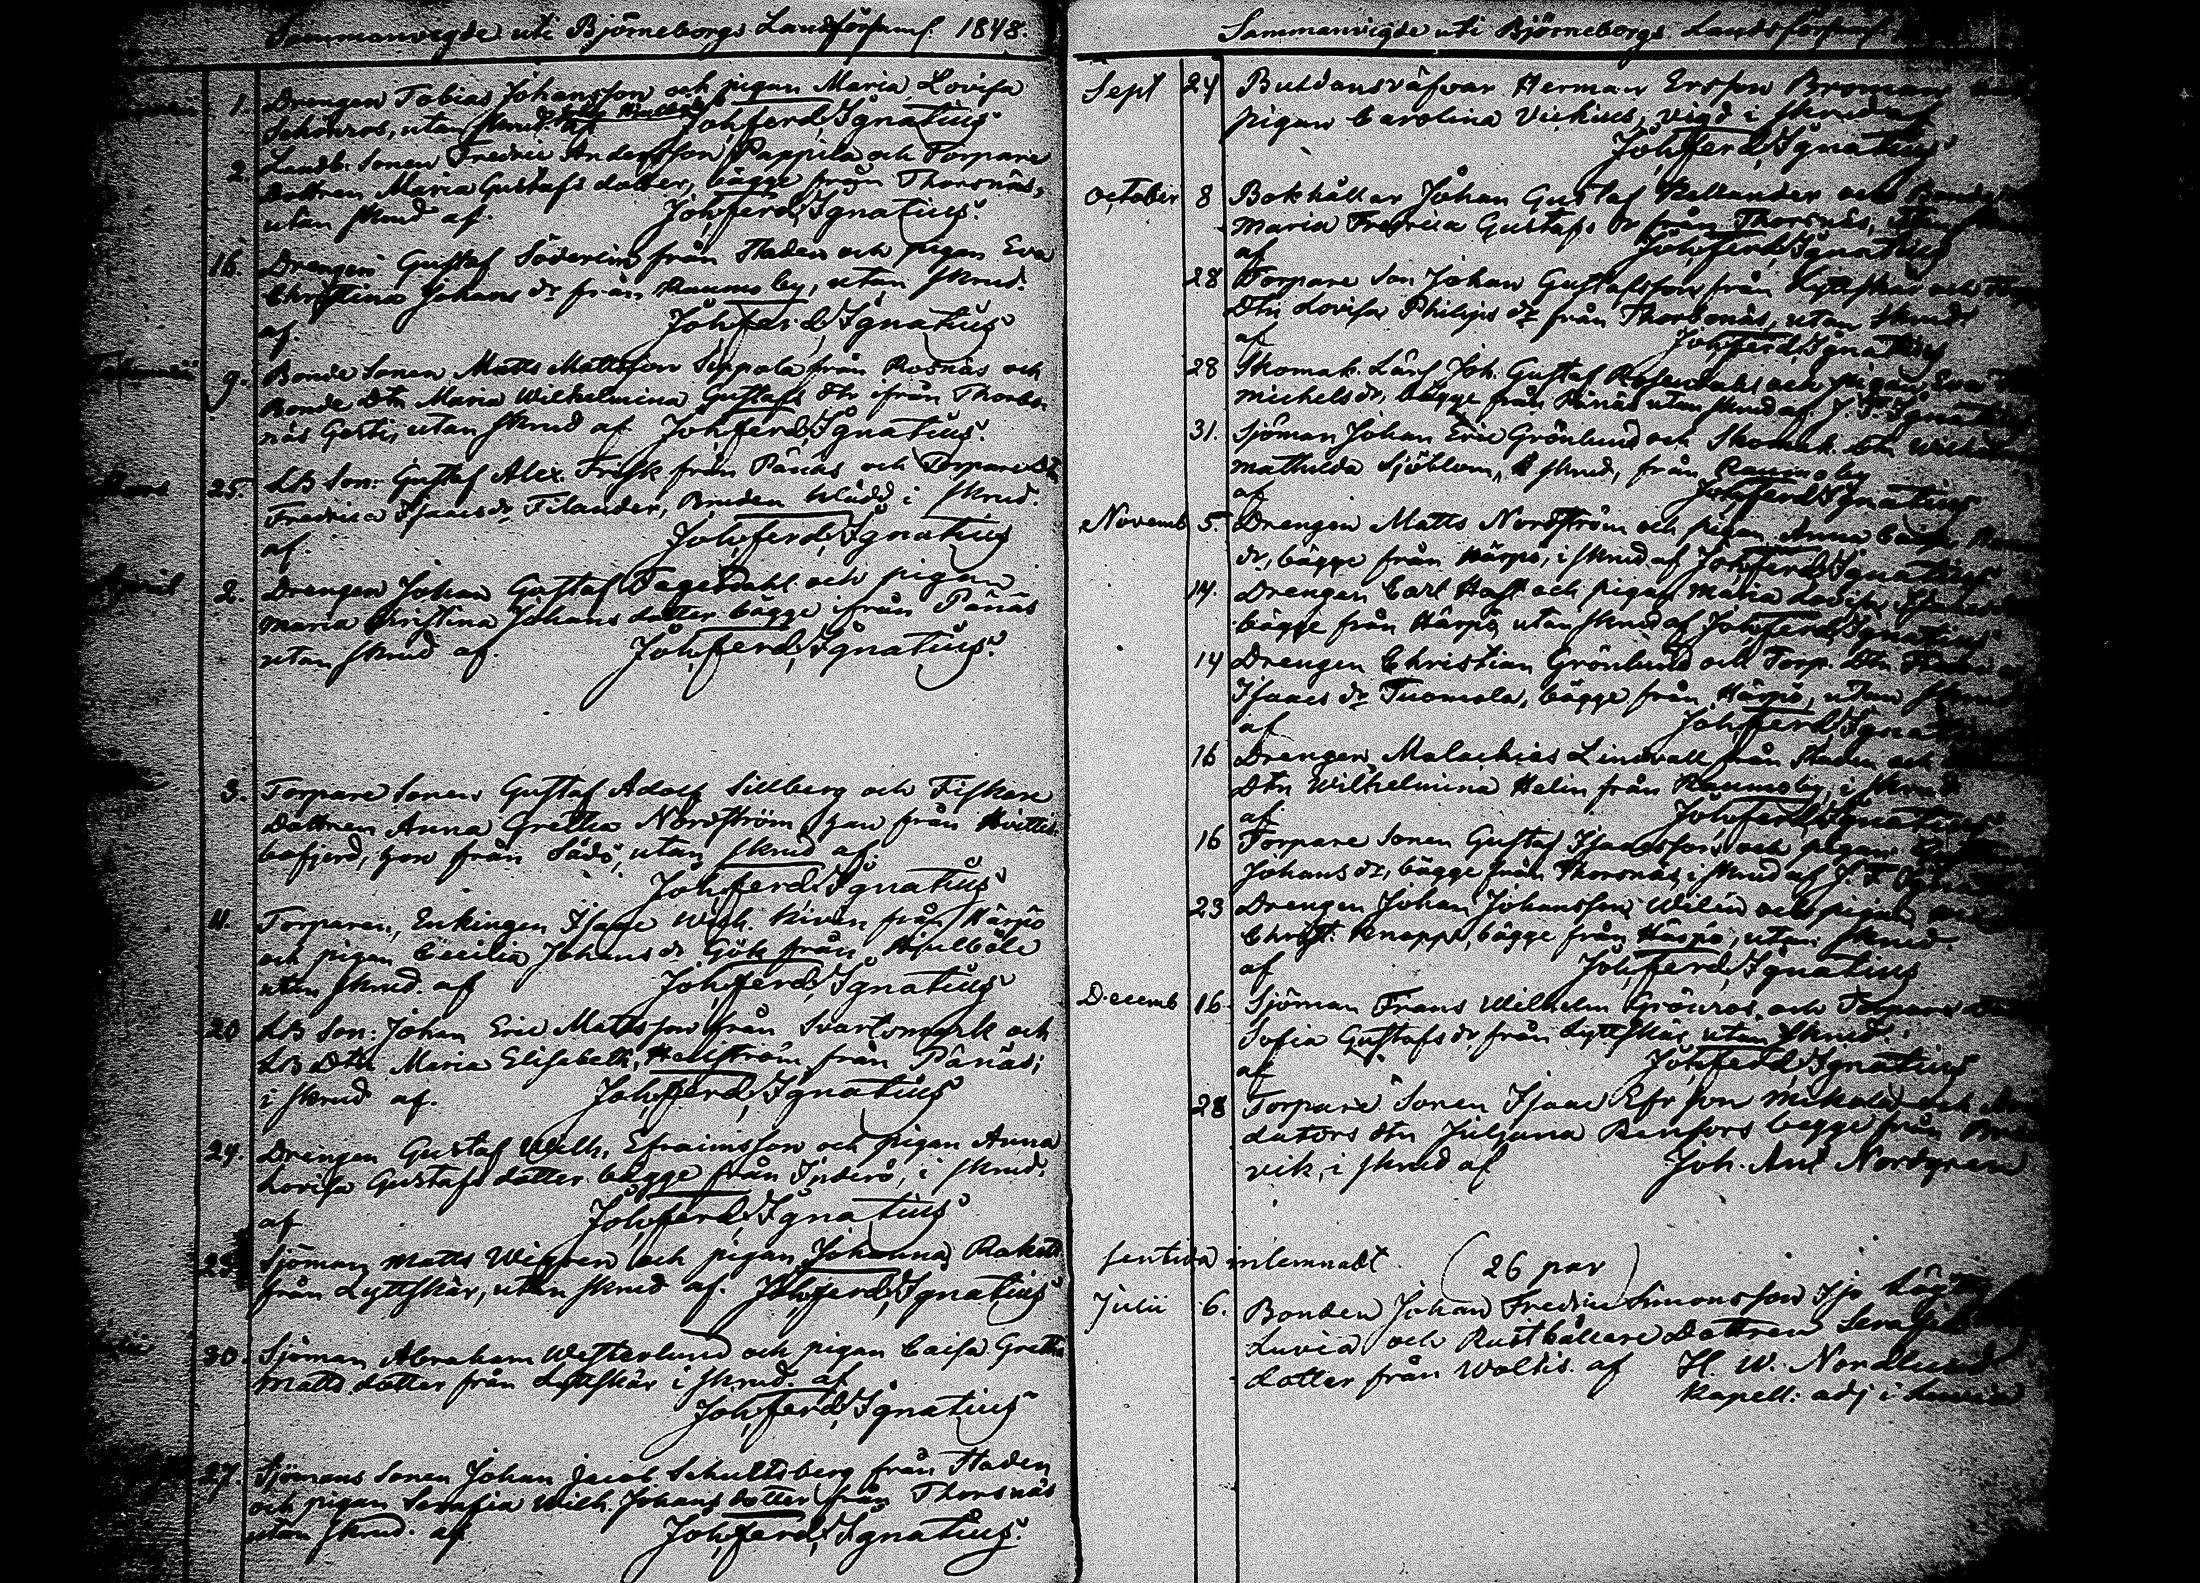 Sammanvigde uti Björneborgs Landsförsaml. 1848.
1. Drengen Tobias Johansson och pigan Maria Lovisa
Schönros, utan skrud af Joh. ferd. Ignatius
2. Landb. Sonen Fredric Andersson Pappila och Torpare
dottren Maria Gustafs dotter, bägge från Thorsnäs,
utan skrud af. Joh. ferd. Ignatius.
16. Drengen Gustaf Söderlin från staden och pigan Eva
Christina Johans dr från Raumo by, utan skrud.
af. Joh. ferd. Ignatius
9. Bonde Sonen Matts Mattsson Seppala från Rosnäs och
Bonde Dtr Maria Wilhelmina Gustafs dtr ifrån Thorbo-
näs Gerti, utan skrud af Joh. ferd. Ignatius.
Mars 25. LB Son: Gustaf Alex. Frisk från Pänäs och Torpare Dr
Fredrica Isaacs dr Filander, Bruden klädd i skrud.
af. Joh. ferd. Ignatius
April 2. Drengen Johan Gustaf Fagerdahl och pigan
Maria Christina Johans dotter bägge ifrån Pänäs
utan skrud af. Joh. ferd. Ignatius.
3. Torpare Sonen Gustaf Adolf Sillberg och Fiskare
dottren Anna Gretha Nordström, han från Hvittis-
bofjerd, hon från Sådö, utan skrud af.
Joh. ferd. Ignatius
11. Torparen, Enkingen Isaac Wilh. Kivin från Härpö
och pigan Cecilia Johans dr Gök från Hjulböle
utan skrud. af Joh. ferd. Ignatius
20 LB Son: Johan Eric Mattsson från Svartsmark och
LB Dtr Maria Elisabeth, Hellström från Pänäs;
i skrud af. Joh. ferd. Ignatius
24. Drengen Gustaf Wilh. Efraimsson och pigan Anna
Lovisa Gustafs dotter bägge från Inderö, i skrud.
af Joh. ferd. Ignatius
25. Sjöman Matts Wigren och pigan Johanna Rakett
från Lyttskär, utan skrud af. Joh. ferd. Ignatius
30. Sjöman Abraham Westerlund och pigan Caisa Gretha
Matts dotter från Lyttskär i skrud. af
Joh. ferd. Ignatius
27. Sjömans Sonen Johan Jacob Schultsberg från staden
och pigan Serafia Wilh. Johans dotter från Thorsnäs
utan skrud. af Joh. ferd. Ignatius.
Sammanvigde uti Björneborgs Landsförsaml
Sept 24 Buldansväfvar Herman Ersson Broman
pigan Carolina Vickius, vigd i skrud af
Joh. ferd. Ignatius
October 8 Bokhållar Johan Gustaf Kellander och Bonde
Maria Fredrica Gustafs dr från Thorsnäs, utan
af Joh. ferd. Ignatius
28 Torpare Son Johan Gustafsson från Lyttskär och
Dtr Lovisa Philips dr från Thorbonäs, utan skrud.
af Joh. ferd. Ignatius
28 Skomak. Lärl Joh. Gustaf Rosendahl och pigan Eva
Michels dr, bägge från Pänäs utan skrud af J. F. Ignatius
31. Sjöman Johan Eric Grönlund och Skomak. Dtr Wilhelmina
Mathilda Sjöblom, skrud, från Raumo by
af Joh. ferd. Ignatius
Novemb 5. Drengen Matts Nordström och pigan Anna Caisa
dr, bägge från Härpö, i skrud af Joh. ferd. Ignatius
14. Drengen Carl Hast och pigan Maria Lovisa
bägge från Härpö utan skrud af Joh. ferd. Ignatius
14 Drengen Christian Grönlund och Torp. Dtr
Isaacs dr Tuomola, bägge från Härpö, utan skrud
af Joh. ferd. Ignatius
16 Drengen Malachias Lindvall från staden och
Dtr Wilhelmina Helin från Raumo by, i skrud
af Joh. ferd. Ignatius
16 Torpare Sonen Gustaf Isaacsson och pigan
Johans dr, bägge från Thorsnäs, i skrud af J. F. Ignatius
23 Drengen Johan Johansson Welin och pigan
Christ. Knappe, bägge från Härpö, utan skrud.
af Joh. ferd. Ignatius
Decemb 16. Sjöman Frans Wilhelm Grönros och Torpare
Sofia Gustafs dr, från Lyttskär, utan skrud.
af Joh. ferd. Ignatius
28 Torpare Sonen Isaac Efr son Mickola och
dators dtr Juliana Renfors begge från
vik, i skrud af Joh. Ant Nordgren
sentida inlemnadt (26 par)
Julii 6. Bonden Johan Fredric Simonsson Iso
Luvia och Rusthållare Dottren
dotter från Woltis. af H. W. Nordlund
Kapell: adj i Luvia